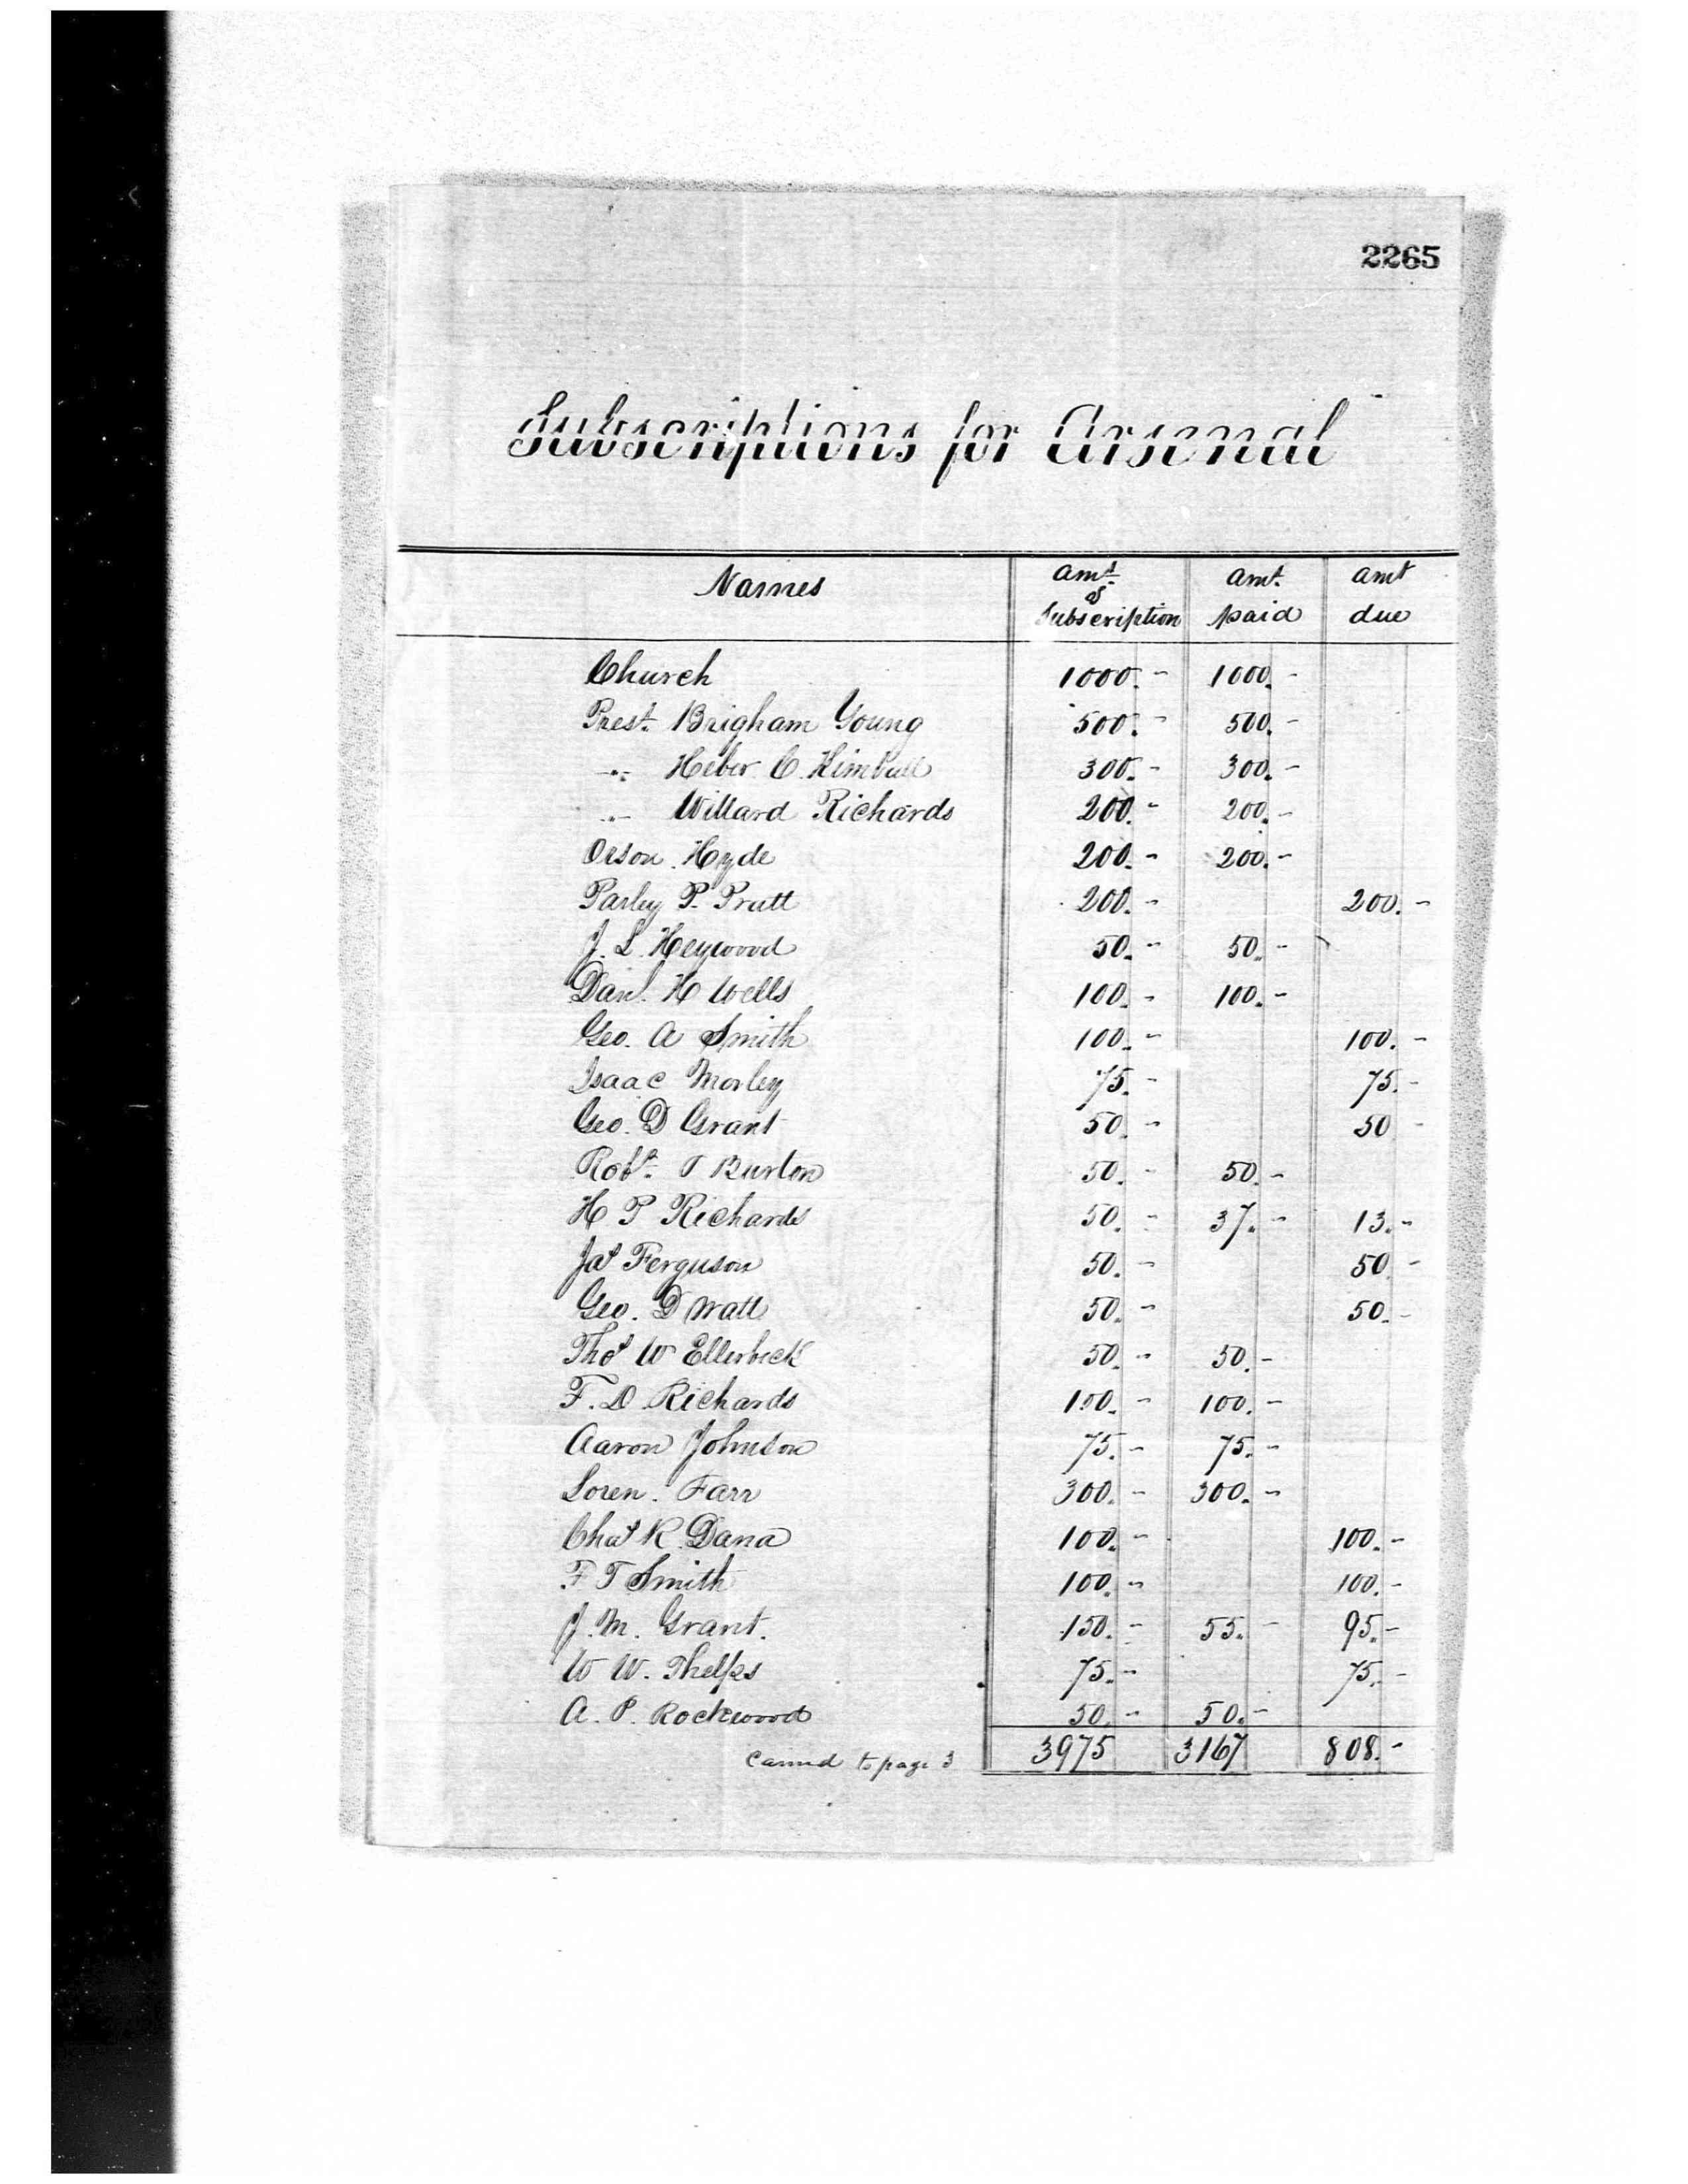 2265
Subscriptions for Arsenal
Names Amt. of Subscription Amt. paid Amt due
Church 1000.- 1000.-
Prest. Brigham Young 500.- 500.-
" Heber C. Kimball 300.- 300.-
" Willard Richards 200.- 200.-
Orson Hyde 200.- 200.-
Parley P. Pratt 200.- 200.-
J. L. Heywood 50.- 50.-
Danl. H Wells 100.- 100.-
Geo. A Smith 100.- 100.-
Isaac Morley 75.- 75.-
Geo. D Grant 50.- 50 -
Robt. T Burton 50.- 50.-
H P Richards 50.- 37.- 13.-
Jas Ferguson 50.- 50.-
Geo. D Watt 50.- 50.-
Thos W Ellerbeck 50.- 50.-
F. D. Richards 100.- 100.-
Aaron Johnson 75.- 75.-
Loren. Farr 300.- 300.-
Chas R. Dana 100.- 100.-
F T Smith 100.- 100.-
J. M. Grant. 150.- 55.- 95.-
W W. Phelps 75.- 75.-
A. P. Rockwood 50.- 50.-
Carried to page 3 3975 3167 808.-